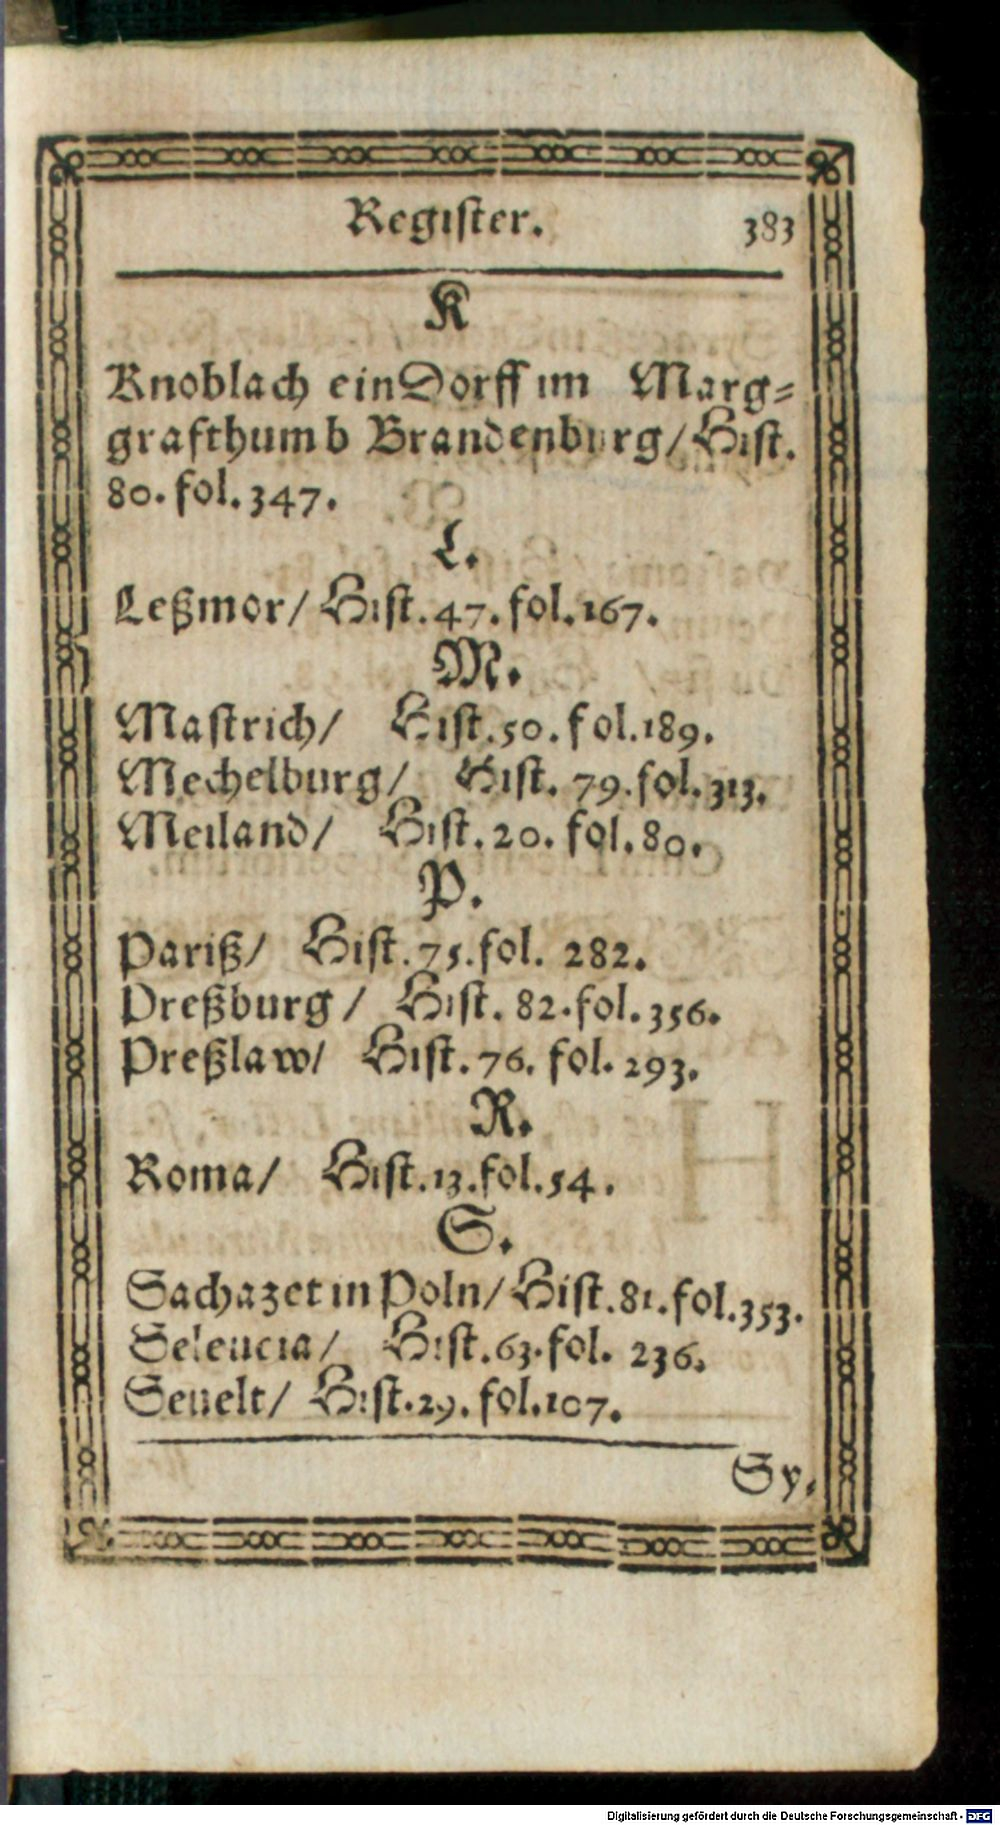 Regiſter. 383
K
Knoblach ein Dorff im Marg⸗
grafthumb Brandenburg/ Hiſt.
80. fol. 347.
L.
Leßmor/ Hiſt. 47. fol. 167.
M.
Maſtrich/ Hiſt. 50. fol. 189.
Mechelburg/ Hiſt. 79. fol. 313.
Meiland/ Hiſt. 20. fol. 80.
P.
Pariß/ Hiſt. 75. fol. 282.
Preßburg/ Hiſt. 82. fol. 356.
Preßlaw/ Hiſt. 76. fol. 293.
R.
Roma/ Hiſt. 13. fol. 54.
S.
Sachazet in Poln/ Hiſt. 81. fol. 353.
Seleucia/ Hiſt. 63. fol. 236.
Seuelt/ Hiſt. 29. fol. 107.
Sy.
Digitalisierung gefördert durch die Deutsche Forschungsgemeinschaft - DFG